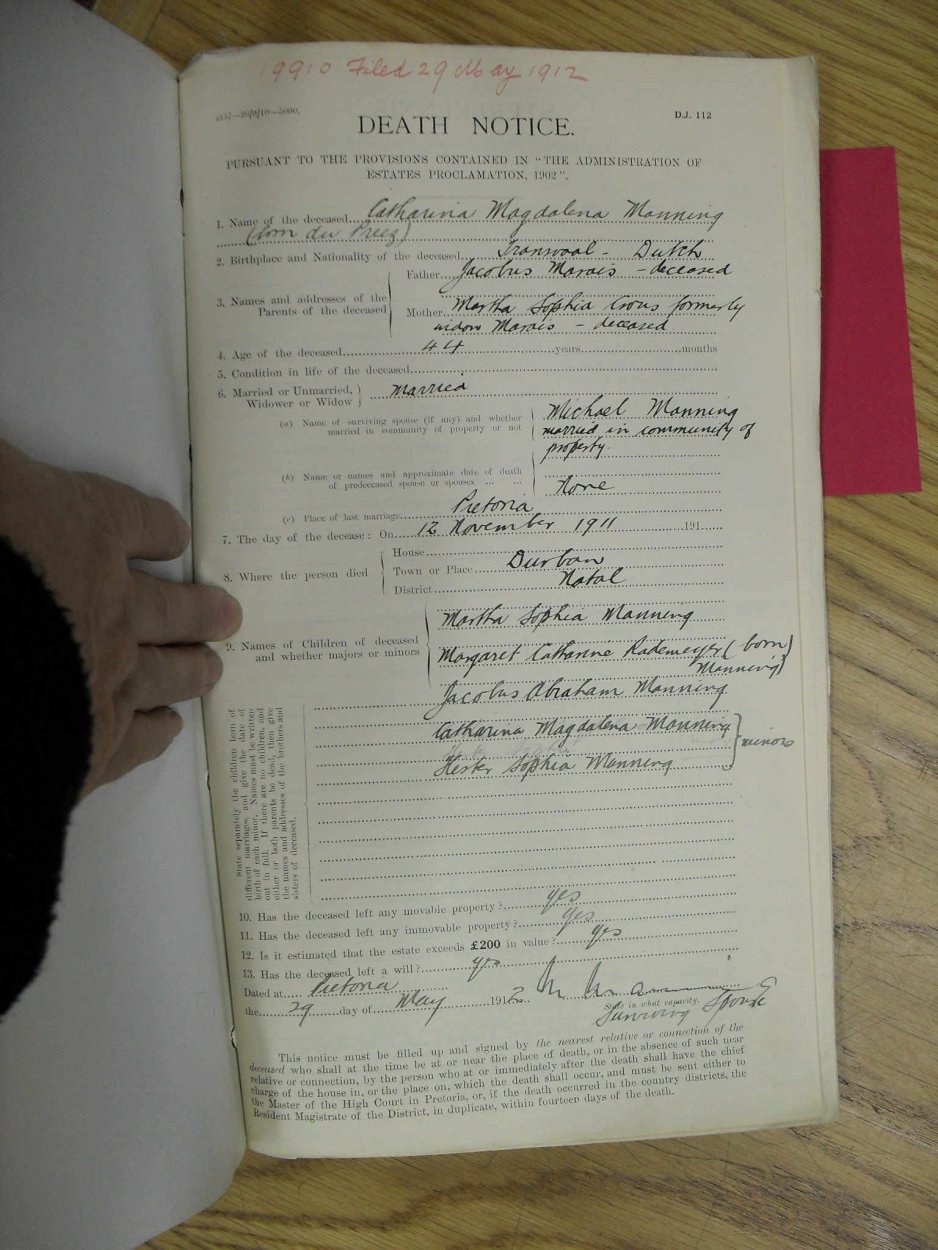 19910 Filed 29 May 1912
D.J. 112
DEATH NOTICE.
PURSUANT TO THE PROVISIONS CONTAINED IN “THE ADMINISTRATION OF
ESTATES PROCLAMATION, 1902”.
1. Name of the deceased Catharina Magdalena Manning
(born du Preez)
2. Birthplace and Nationality of the deceased Transvaal - Dutch
3. Names and addresses of the Parents of the deceased
Father Jacobus Marais - deceased
Mother Martha Sophia Crous formerly
widow Marais - deceased
4. Age of the deceased 44 years months
5. Condition in life of the deceased
6. Married or Unmarried, Widower or Widow } Married
(a) Name of surviving spouse (if any) and whether
married in community of property or not
Michael Manning
married in community of
property.
(b) Name or names and approximate date of death
of predeceased spouse or spouses ... ...
None
(c) Place of last marriage Pretoria
7. The day of the decease: On 12 November 1911 191
8. Where the person died
House
Town or Place Durban
District Natal
9. Names of Children of deceased
and whether majors or minors
Martha Sophia Manning
Margaret Catharine Rademeyer (born
Manning)
Jacobus Abraham Manning
Catharina Magdalena Manning
Hester Sophia Manning
} minors
State separately the children born of
different marriages, and give the date of
birth of each minor. Names must be written
out in full. If there are no children, and
either or both parents be dead, then give
the names and addresses of the brothers and
sisters of deceased.
10. Has the deceased left any movable property? yes
11. Has the deceased left any immovable property? yes
12. Is it estimated that the estate exceeds £200 in value? yes
13. Has the deceased left a will? yes
Dated at Pretoria
the 29 day of May 1912
State in what capacity.
Surviving Spouse
This notice must be filled up and signed by the nearest relative or connection of the
deceased who shall at the time be at or near the place of death, or in the absence of such near
relative or connection, by the person who at or immediately after the death shall have the chief
charge of the house in, or the place on, which the death shall occur, and must be sent either to
the Master of the High Court in Pretoria, or, if the death occurred in the country districts, the
Resident Magistrate of the District, in duplicate, within fourteen days of the death.